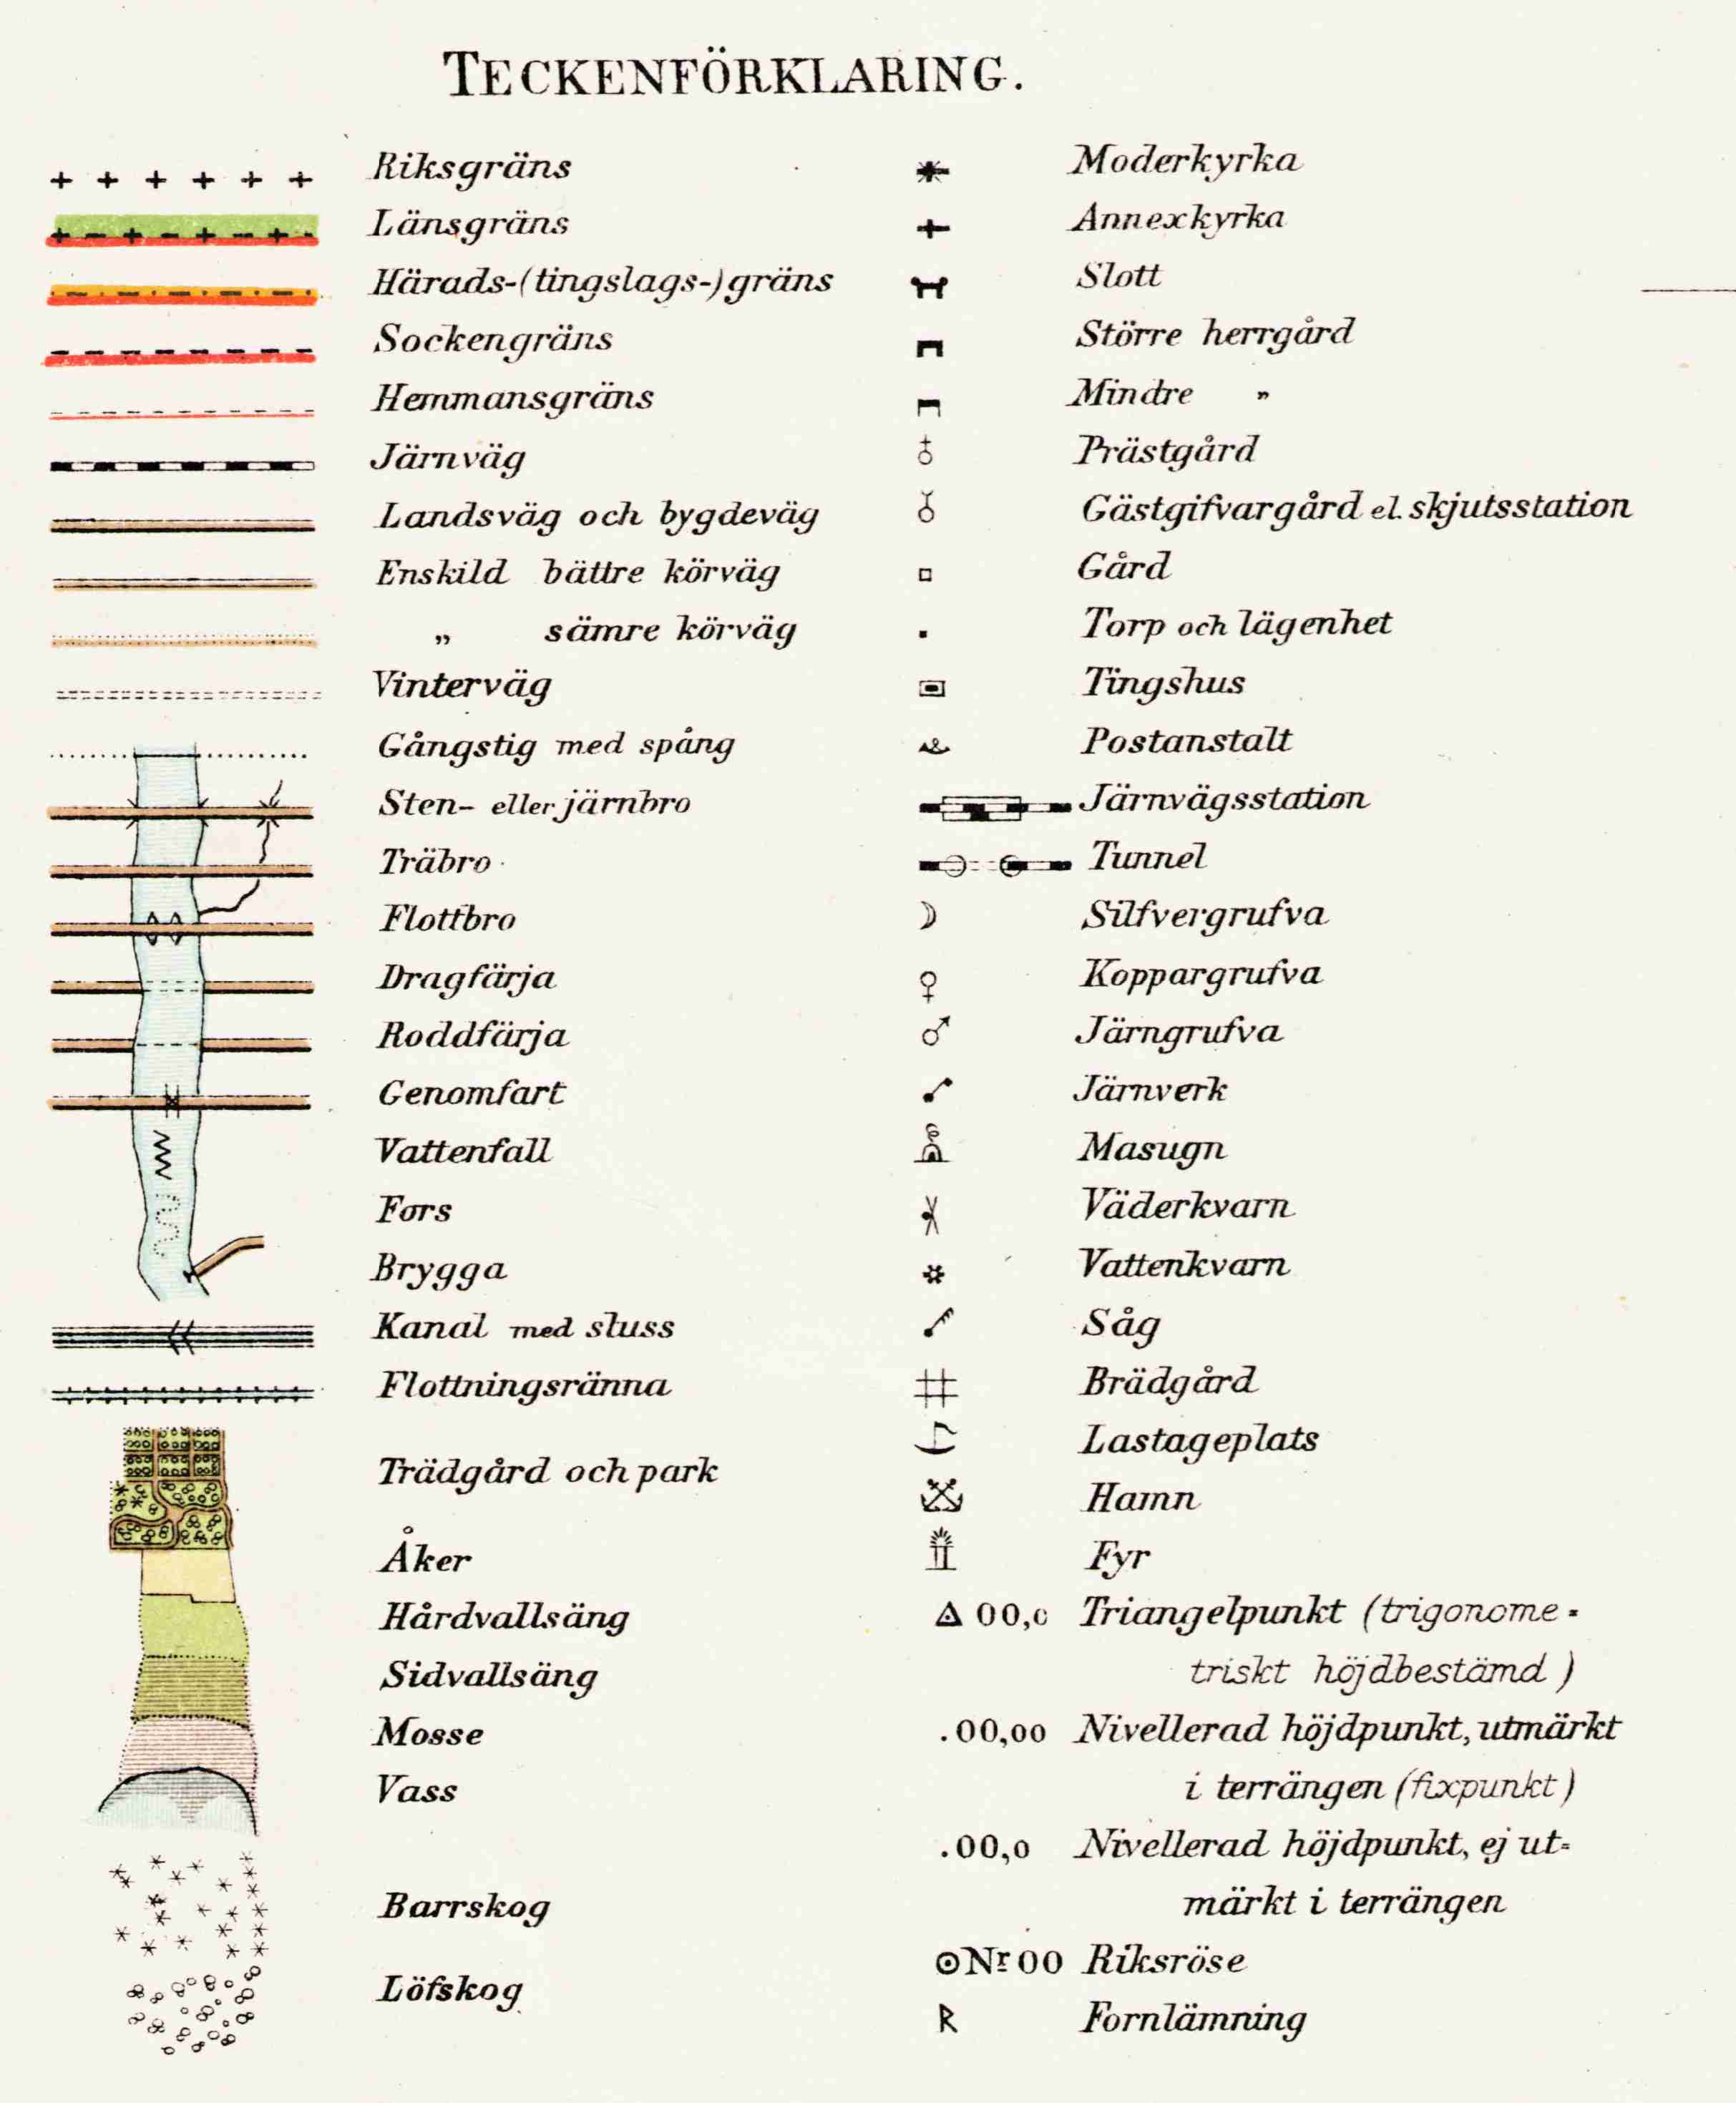 TECKENFÖRKLARING.
Riksgräns
Länsgräns
Härads-(tingslags-)gräns
Sockengräns
Hemmansgräns
Järnväg
Landsväg och bygdeväg
Enskild bättre körväg
„ sämre körväg
Vinterväg
Gångstig med spång
Sten- eller järnbro
Träbro
Flottbro
Dragfärja
Roddfärja
Genomfart
Vattenfall
Fors
Brygga
Kanal med sluss
Flottningsränna
Trädgård och park
Åker
Hårdvallsäng
Sidvallsäng
Mosse
Vass
Barrskog
Löfskog
Moderkyrka
Annexkyrka
Slott
Större herrgård
Mindre „
Prästgård
Gästgifvargård el. skjutsstation
Gård
Torp och lägenhet
Tingshus
Postanstalt
Järnvägsstation
Tunnel
Silfvergrufva
Koppargrufva
Järngrufva
Järnverk
Masugn
Väderkvarn
Vattenkvarn
Såg
Brädgård
Lastageplats
Hamn
Fyr
00,0 Triangelpunkt (trigonome-
triskt höjdbestämd)
.00,00 Nivellerad höjdpunkt, utmärkt
i terrängen (fixpunkt)
.00,0 Nivellerad höjdpunkt, ej ut-
märkt i terrängen
Nr 00 Riksröse
R Fornlämning